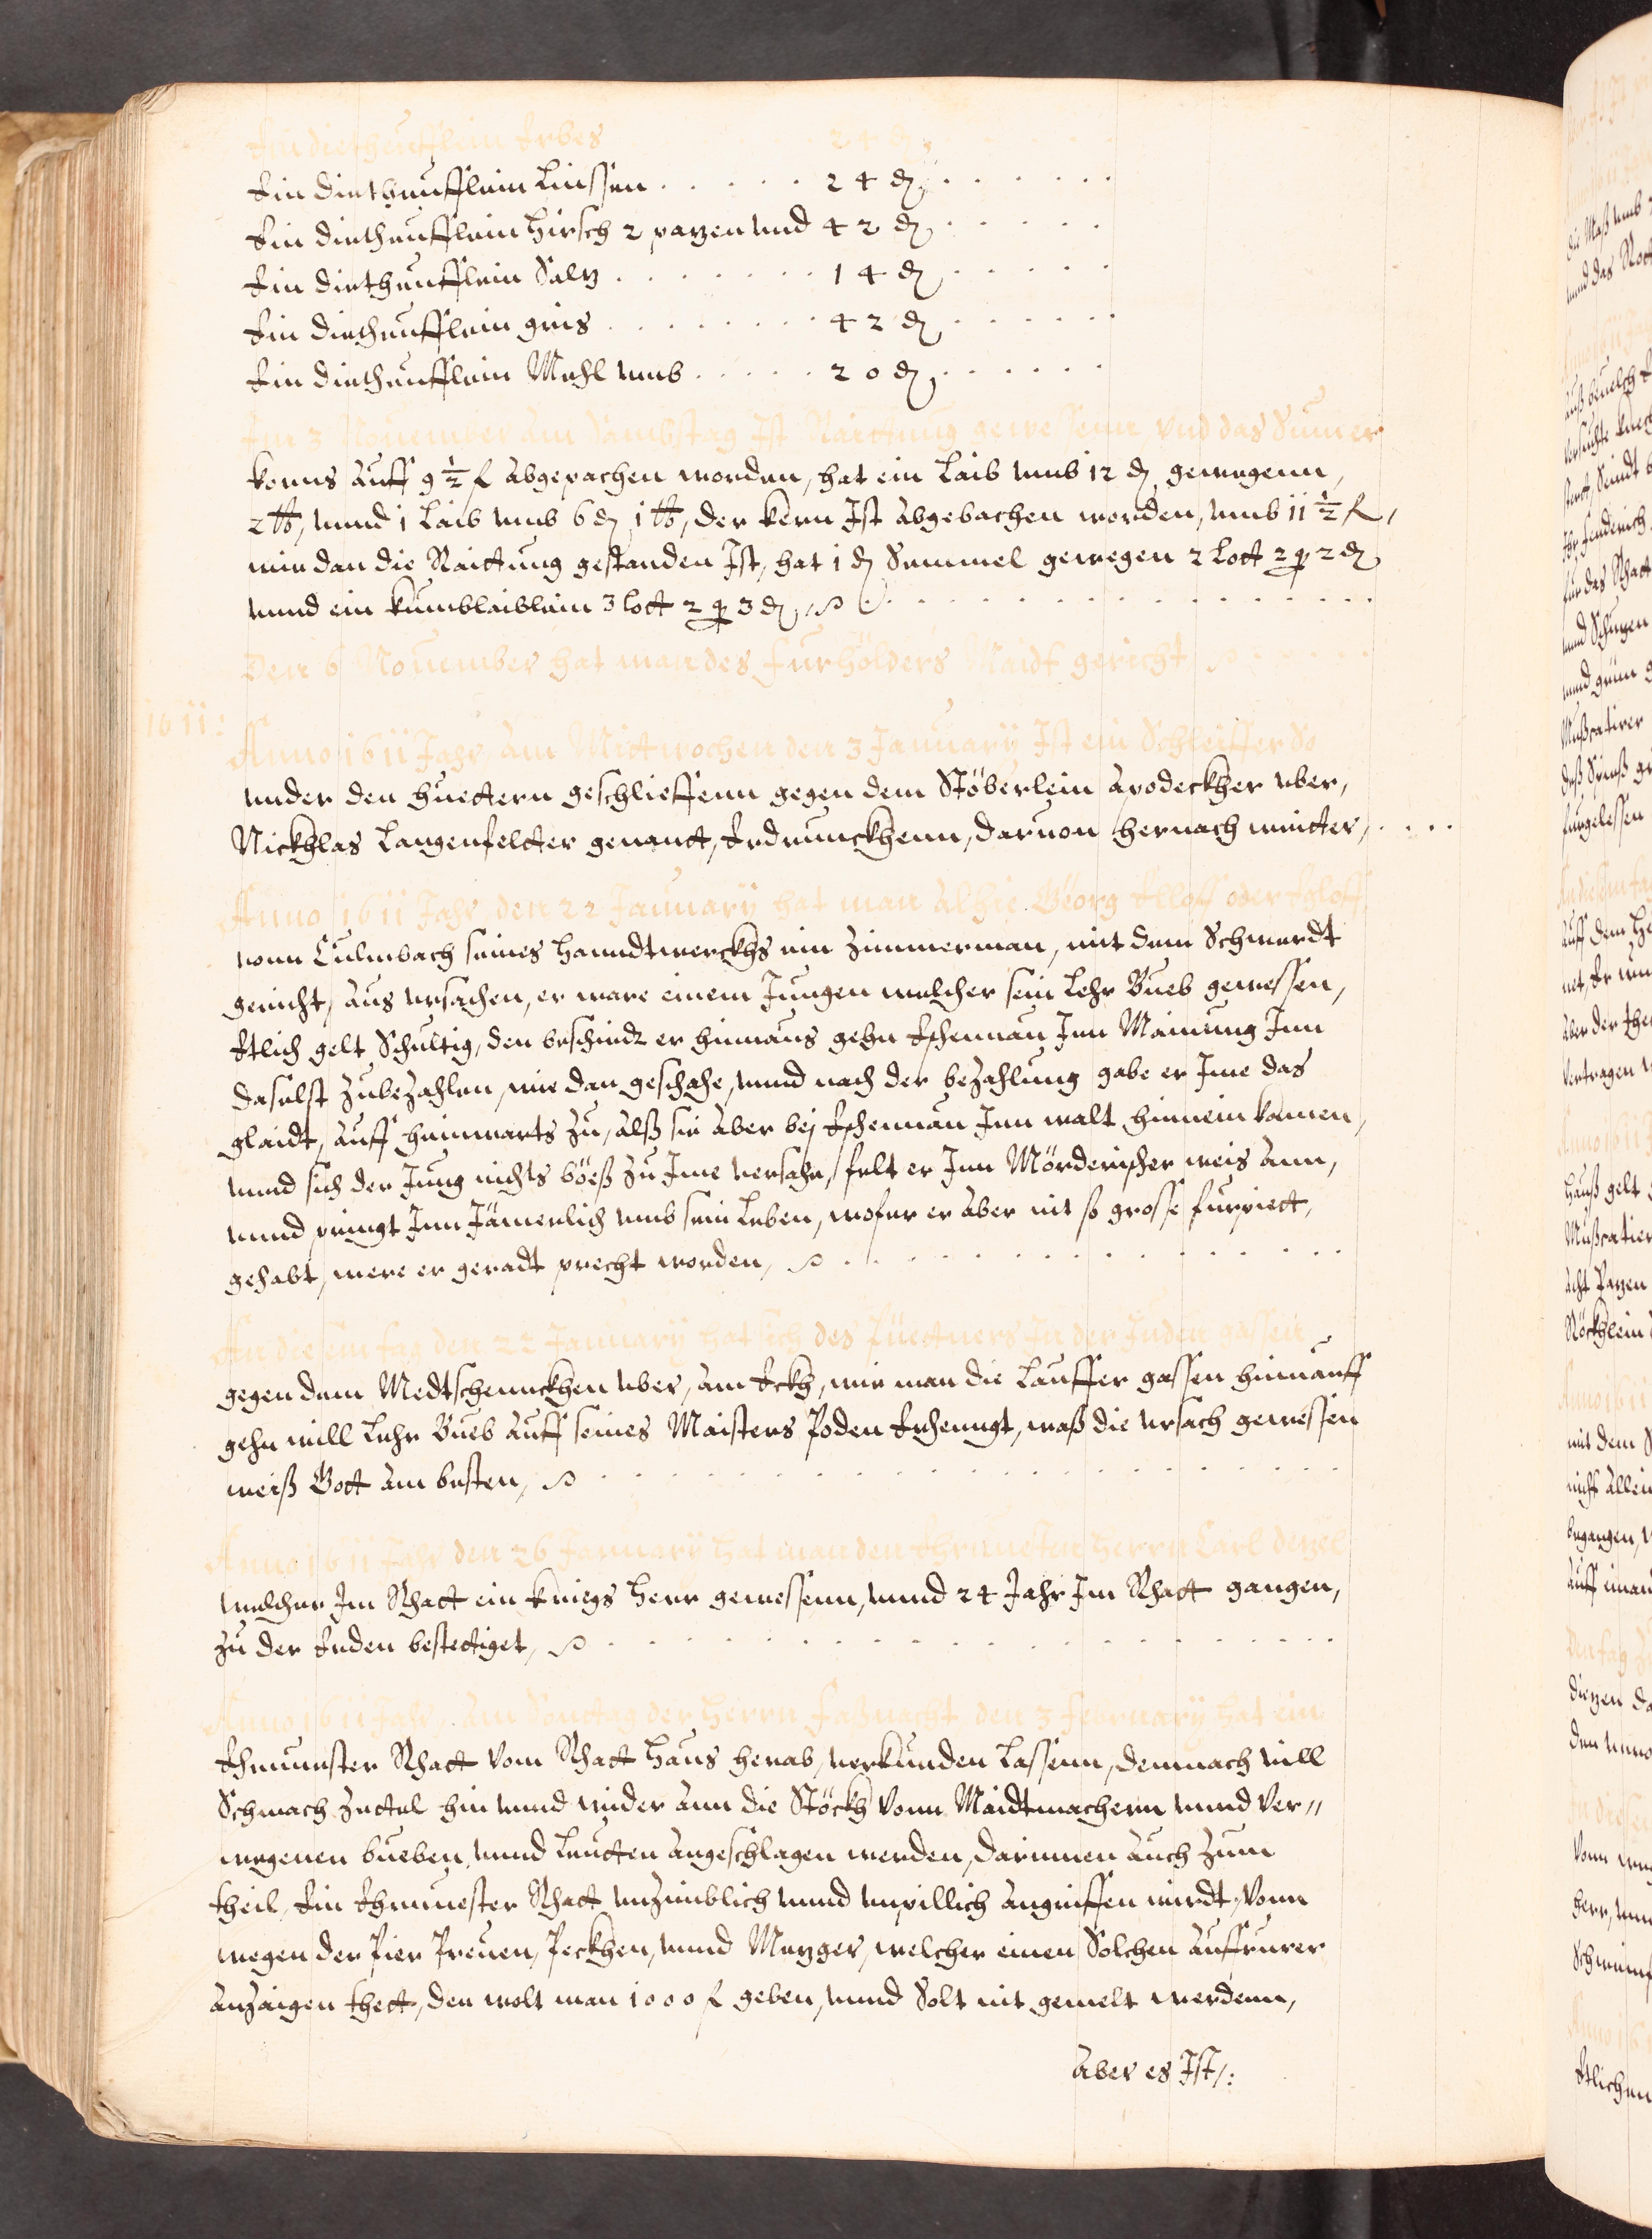 Ein dietheufflein Erbes 24 ₰
Ein dietheufflein Linssen . . . . . 24 ₰ . . . . .
Ein dietheufflein Hirsch 2 pazen vnd 42 ₰ . . . .
Ein dietheufflein Saltz . . . . . . 14 ₰ . . . . .
Ein dietheufflein gries . . . . . . 42 ₰ . . . . .
Ein dietheufflein Mehl vmb . . . . . 20 ₰ . . . . .
Im 3 Nouember am Sambstag Ist Raittung gewessenn vnd das Sumer
korns auff 9 ½ f abgepachen worden, hat ein Laib vmb 12 ₰ gewegenn,
2 ℔, vnnd 1 Laib vmb 6 ₰ 1 ℔, der kern Ist abgebachen worden, vmb 11 ½ f,
wie dan die Raittung gestanden Ist, hat 1 ₰ Semmel gewegen 2 Lott 2 q 2 ₰
vnnd ein kumblaiblein 3 lott 2 q 3 ₰
Den 6 Nouember hat man des furhölders Maidt gericht
1611:
Anno 1611 Jahr am Mittwochen den 3 January Ist ein Schleiffer So
vnder den huettern geschlieffenn gegen dem Stöberlein apodeckher vber,
Nickhlas Langenfeltter genantt, Erdrunckhenn, daruon hernach weitter, . . . .
Anno 1611 Jahr den 22 January hat man alhie Georg Elloff oder Egloff
vonn Culmbach seines Hanndtwerckhs ein Zimmerman, mit dem Schwerdt
gericht, aus vrsachen, er ware einem Jungen welcher sein Lehr Bueb gewessen,
Etlich gelt Schultig, den beschiedt er hinnaus gehn Eschennau Inn Mainung Inn
daselbst zubezahlen, wie dan geschahe, vnnd nach der bezahlung gabe er Ime das
glaidt, auff heimwarts zu, alß sie aber bej Eschennau Inn walt hinnein kamen,
vnnd sich der Jung nichts böeß zu Ime versahe, felt er Inn Mörderischer weis ann,
vnnd pringt Inn Jämerlich vmb sein Leben, wofer er aber nit so grosse furpiett,
gehabt, were er geradt precht worden,
An diesem tag den 22 January hat sich des Huettners In der Juden gassen
gegen dem Medtschennckhen vber, am Eckh, wie man die Lauffer gassen hinnauff
gehn will Lehr Bueb auff seines Maisters Poden Erhenngt, waß die vrsach gewessen
weiß Gott am besten,
Anno 1611 Jahr den 26 January hat man den Ehrnuesten herrn Carl dezel
welcher Im Rhatt ein kriegs Herr gewessenn, vnnd 24 Jahr Im Rhatt gangen,
zu der Erden bestettiget,
Anno 1611 Jahr, am Sontag der Herrn Faßnacht den 3 February hat ein
Ehrnuester Rhatt vom Rhatt Haus herab, verkunden Lassenn, demnach viell
Schmach Zettel hin vnnd wider ann die Stöckh vonn Maidtmachern vnnd ver-
wegenen bueben, vnnd Leutten angeschlagen werden, darinnen auch zum
theil, Ein Ehrnuester Rhatt vnzimblich vnnd vnpillich angriffen wirdt, vonn
wegen der Pier Preuen, Peckhen, vnnd Mezger, welcher einen Solchen auffrurer
anzaigen thett, den wolt man 1000 f geben, vnnd Solt nit gemelt werdenn,
aber es Ist/: